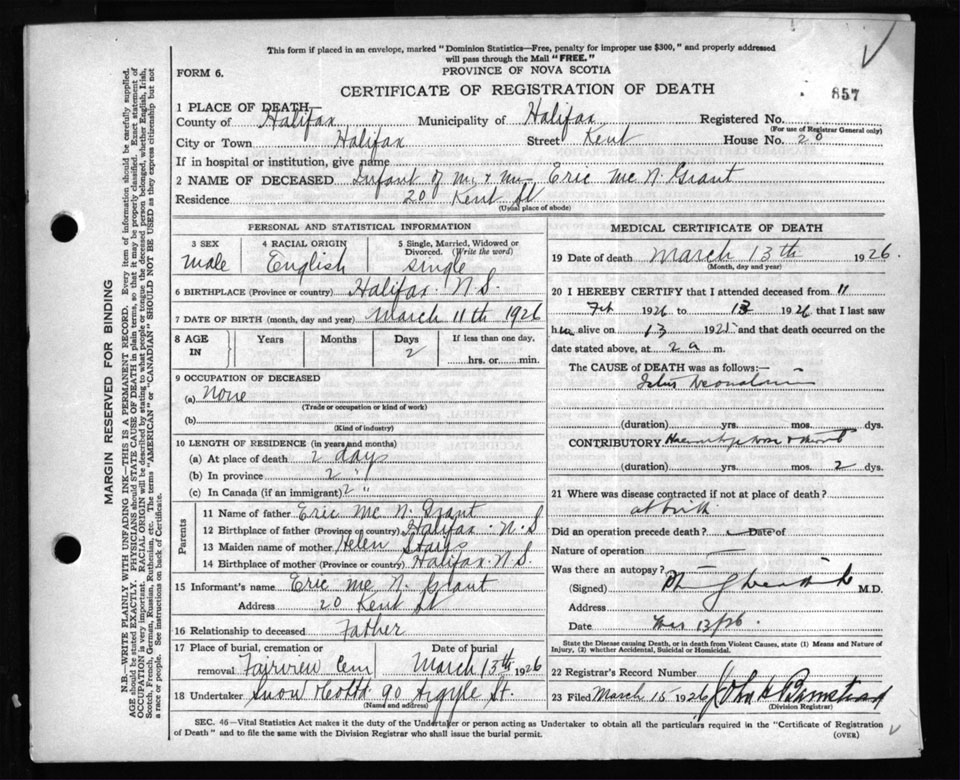 This form if placed in an envelope, marked "Dominion Statistics—Free, penalty for improper use $300," and properly addressed
will pass through the Mail "FREE."
FORM 6.
PROVINCE OF NOVA SCOTIA
CERTIFICATE OF REGISTRATION OF DEATH
857
1 PLACE OF DEATH—
County of Halifax Municipality of Halifax Registered No.
(For use of Registrar General only)
City or Town Halifax Street Kent House No. 20
If in hospital or institution, give name
2 NAME OF DECEASED Infant of Mr & Mrs Eric Mc N. Grant
Residence 20 Kent St
(Usual place of abode)
PERSONAL AND STATISTICAL INFORMATION
3 SEX 4 RACIAL ORIGIN 5 Single, Married, Widowed or Divorced. (Write the word)
Male English Single
6 BIRTHPLACE (Province or country) Halifax N.S.
7 DATE OF BIRTH (month, day and year) March 11th 1926
8 AGE IN Years Months Days If less than one day,
2 hrs. or min.
9 OCCUPATION OF DECEASED
(a) None
(Trade or occupation or kind of work)
(b)
(Kind of industry)
10 LENGTH OF RESIDENCE (in years and months)
(a) At place of death 2 days
(b) In province 2 "
(c) In Canada (if an immigrant) 2 "
Parents
11 Name of father Eric Mc N. Grant
12 Birthplace of father (Province or country) Halifax N.S
13 Maiden name of mother Helen
14 Birthplace of mother (Province or country) Halifax N.S.
15 Informant's name Eric Mc N. Grant
Address 20 Kent St
16 Relationship to deceased Father
17 Place of burial, cremation or Date of burial
removal Fairview Cem March 13th 1926
18 Undertaker Snow 90 Argyle St.
(Name and address)
MEDICAL CERTIFICATE OF DEATH
19 Date of death March 13th 1926.
(Month, day and year)
20 I HEREBY CERTIFY that I attended deceased from 11
Feb 1926 to 13 1926 that I last saw
h alive on 13 192 and that death occurred on
date stated above, at 2 a m.
The CAUSE of DEATH was as follows:—
(duration) yrs. mos. dys.
CONTRIBUTORY
(duration) yrs. mos. 2 dys.
21 Where was disease contracted if not at place of death?
at birth
Did an operation precede death? Date of
Nature of operation
Was there an autopsy?
(Signed) M.D.
Address
Date Mar 13/26
State the Disease causing Death, or in death from Violent Causes, state (1) Means and Nature of
Injury, (2) whether Accidental, Suicidal or Homicidal.
22 Registrar's Record Number
23 Filed March 15 1926 John H Barnstead
(Division Registrar)
SEC. 46—Vital Statistics Act makes it the duty of the Undertaker or person acting as Undertaker to obtain all the particulars required in the "Certificate of Registration
of Death" and to file the same with the Division Registrar who shall issue the burial permit.
(OVER)
MARGIN RESERVED FOR BINDING
N.B.—WRITE PLAINLY WITH UNFADING INK—THIS IS A PERMANENT RECORD. Every item of information should be carefully supplied.
AGE should be stated EXACTLY. PHYSICIANS should STATE CAUSE OF DEATH in plain terms, so that it may be properly classified. Exact statement of
OCCUPATION is very important. RACIAL ORIGIN will be described by stating to what people or tongue the deceased person belonged, whether English, Irish,
Scotch, French, German, Russian, Ruthenian, etc. The terms "AMERICAN" or "CANADIAN" SHOULD NOT BE USED as they express citizenship but not
a race or people. See instructions on back of Certificate.